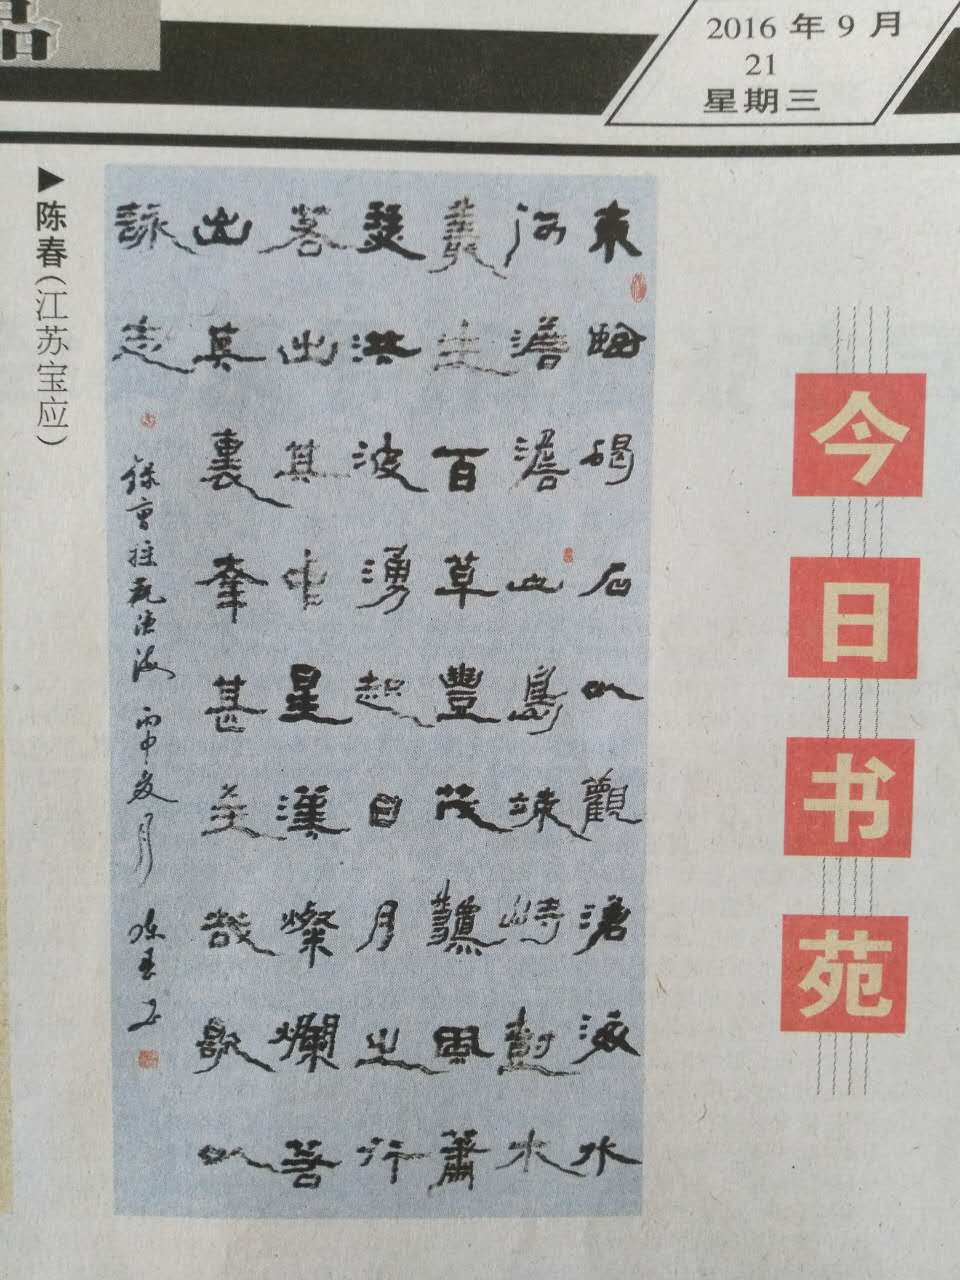 2016 年 9 月
21
星期三
今日书苑
東臨碣石以觀滄海水
何澹澹山島竦峙樹木
叢生百草豐茂龝風蕭
瑟洪波湧起日月之行
若出其中星漢燦爛若
出其裏幸甚至哉歌以
詠志
錄曹操觀滄海 丙申夏月 陳春书
▶陈春(江苏宝应)